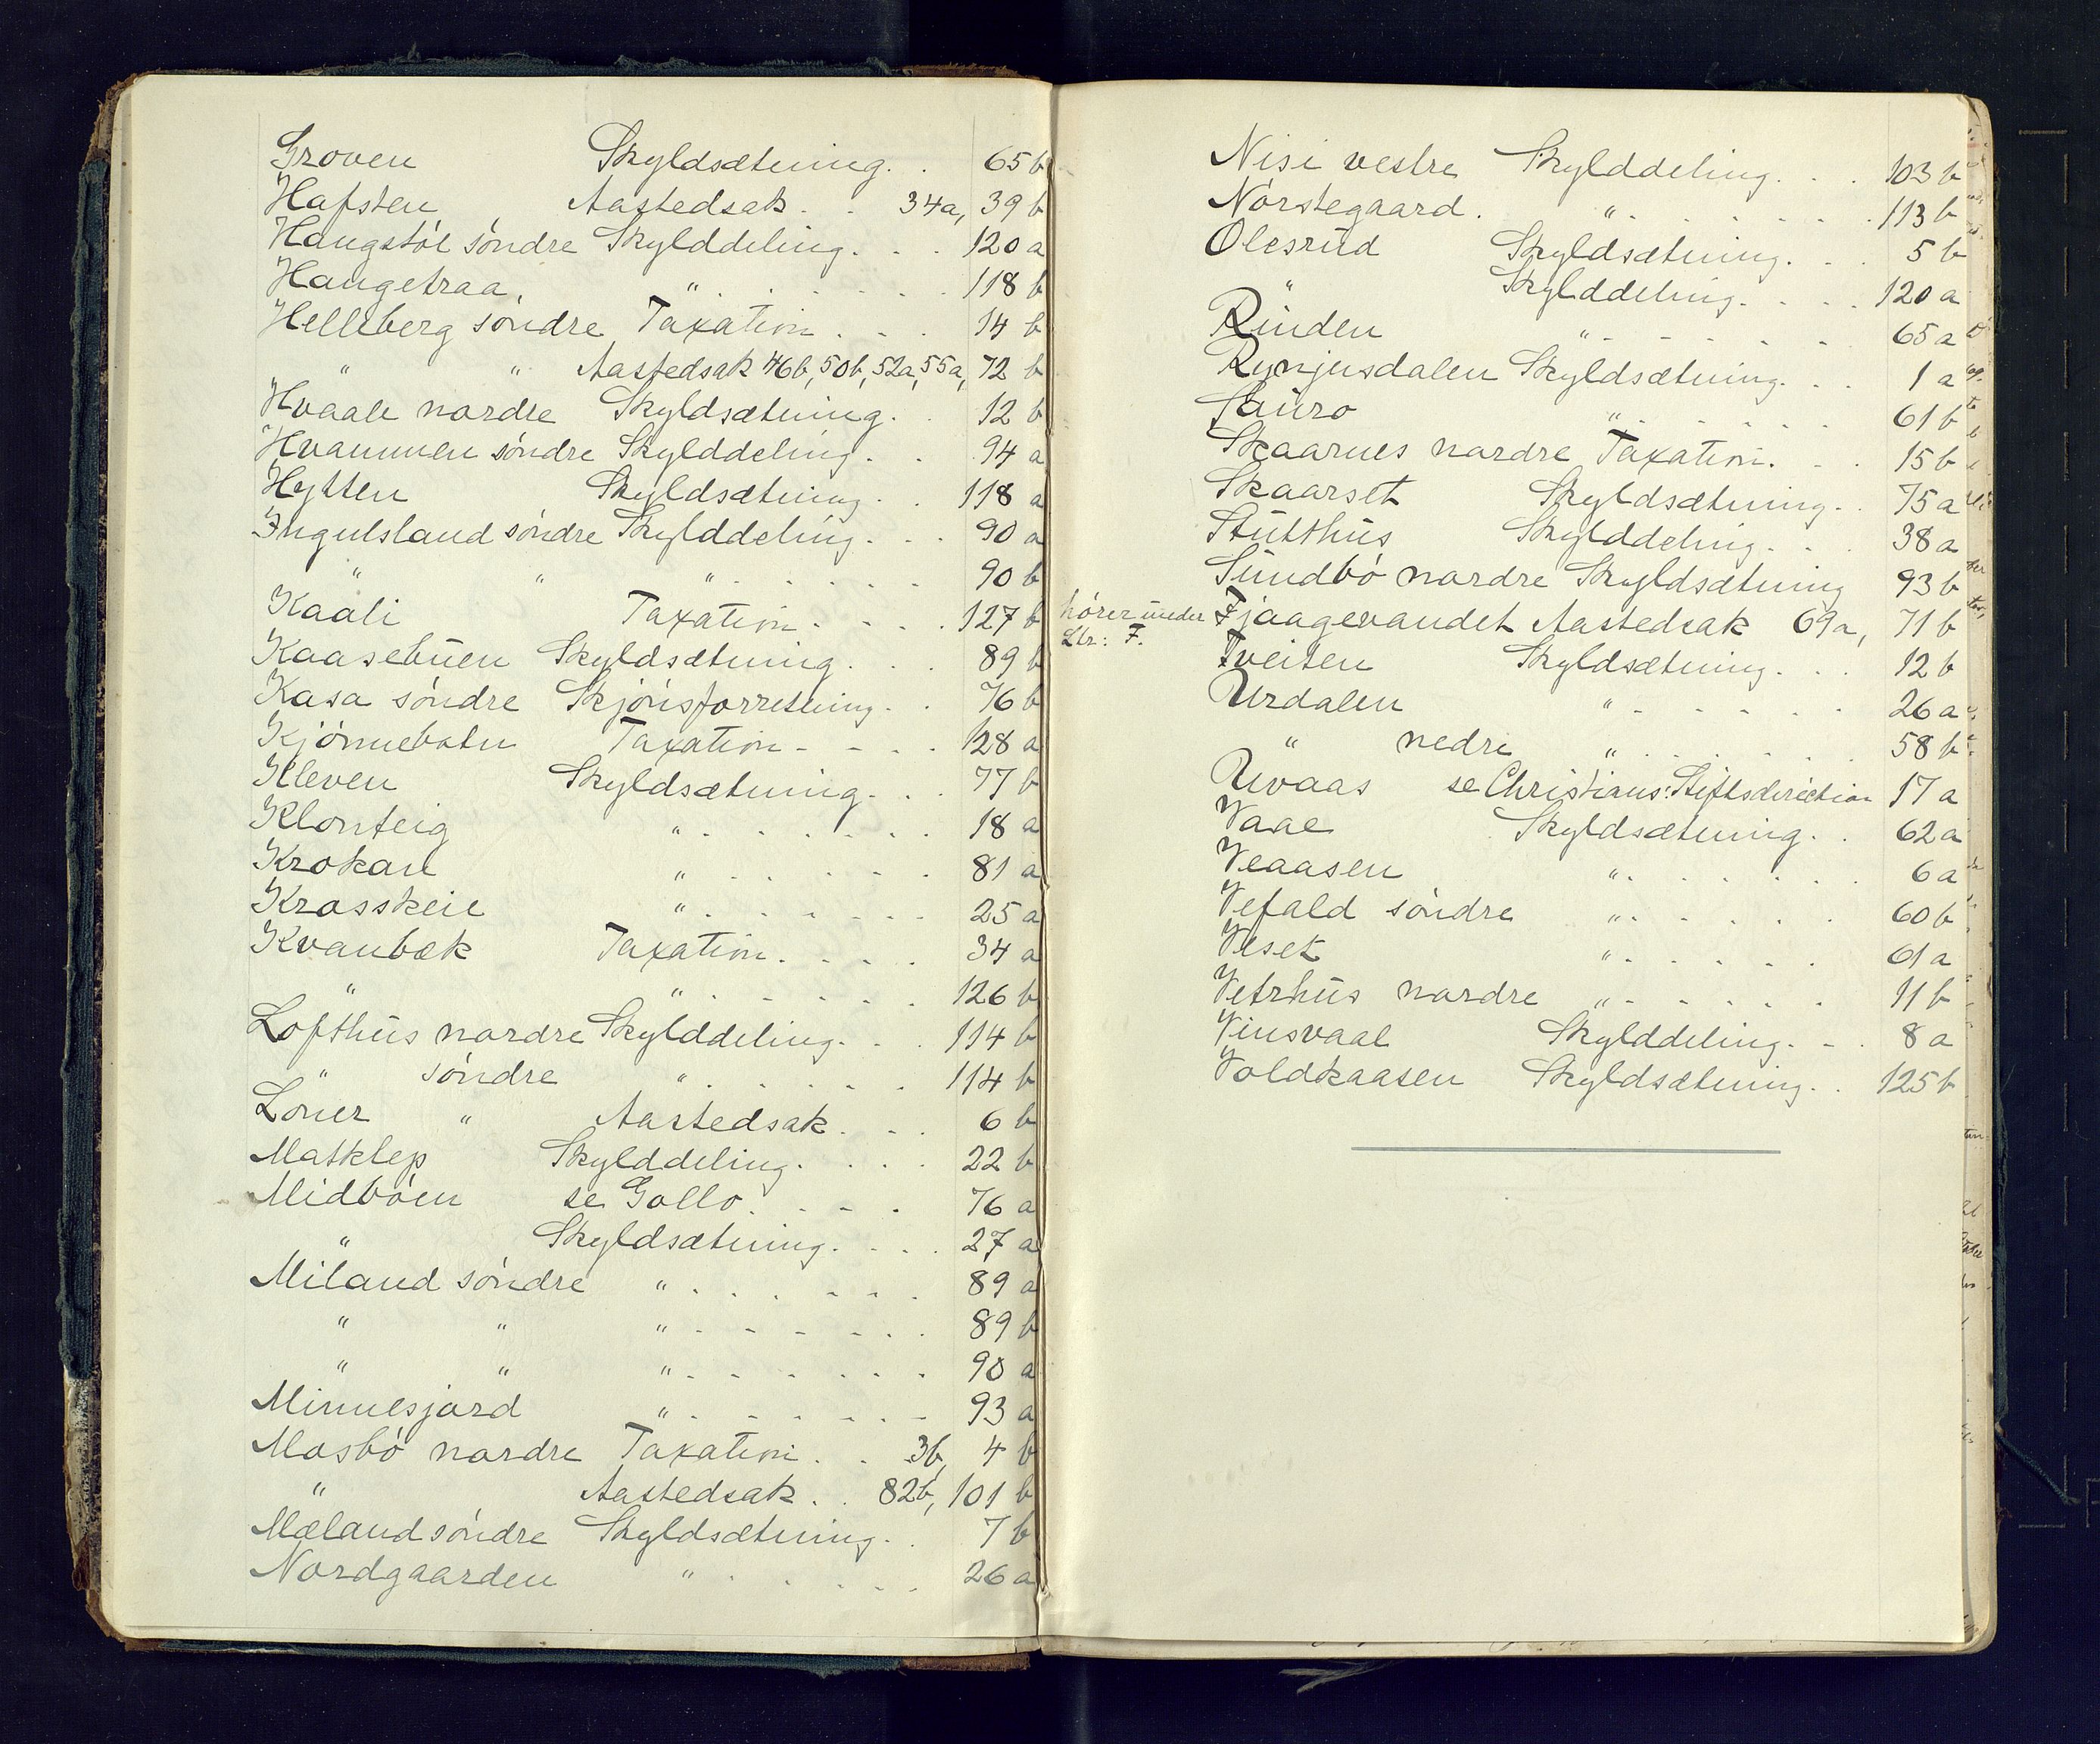 Groven Skyldsætning. . 65 b
Hafsten Aastedsak. . 34a, 39 b
Haugstøl søndre Skylddeling. . . 120 a
Haugetraa, " . . . . . . 118 b
Helleberg søndre Taxation . . . 14 b
" " Aastedsak 46b, 50b, 52a, 55a, 72 b
Hvaale nordre Skyldsætning. . 12 b
Hvammen søndre Skylddeling. . 94 a
Hytten Skyldsætning. . 118 a
Ingulsland søndre Skylddeling. . . 90 a
" " " . . . . . 90 b
Kaali Taxation. . . . 127 b
Kaasebuen Skyldsætning. . . 89 b
Kasa søndre Skjønsforretning. . 76 b
Kjønnebotn Taxation - - . . 128 a
Kleven Skyldsætning. . . 77 b
Klonteig " . . . . . . 18 a
Krokan " . . . . . . 81 a
Krosskeie " . . . . . . 25 a
Kvanbæk Taxation. . . . 34 a
" " . . . . . 126 b
Lofthus nordre Skylddeling. . . 114 b
" søndre " . . . . . 114 b
Løner " Aastedsak. . . 6 b
Matklep Skylddeling. . . . 22 b
Midbøen se Gollo. . . . 76 a
" Skyldsætning. . . . 27 a
Miland søndre " . . . . . . 89 a
" " " . . . . . . 89 b
" " " . . . . . . 90 a
Minnesjord " . . . . . . 93 a
Mosbø nordre Taxation . . 3b, 4 b
" Aastedsak . . 82b, 101 b
Mæland søndre Skyldsætning. . 7 b
Nordgaarden " . . . . . 26 a
Nisi vestre Skylddeling. . . 103 b
Nørstegaard. " . . . . . . 113 b
Olesrud Skyldsætning. . . 5 b
" Skylddeling. . . . 120 a
Runden " . . . . . . 65 a
Rynjusdalen Skyldsætning. . . 1 a
Sauro " . . . . . 61 b
Skaarnes nordre Taxation. . . 15 b
Skaarset Skyldsætning. . 75 a
Stutthus Skylddeling. . . 38 a
Sundbø nordre Skyldsætning 93 b
hører under Ltr: F. Fjaagevandet Aastedsak 69a, 71 b
Tveiten Skyldsætning. . . 12 b
Urdalen " . . . . . 26 a
" nedre " . . . . . 58 b
Uvaas se Christians: Stiftsdirection 17 a
Vaae Skyldsætning. . 62 a
Veaasen " . . . . . . 6 a
Vefald søndre " . . . . . 60 b
Veset " . . . . . 61 a
Vetrhus nordre " . . . . . 11 b
Vinsvaal Skylddeling. . . 8 a
Voldkaasen Skyldsætning. . 125 b